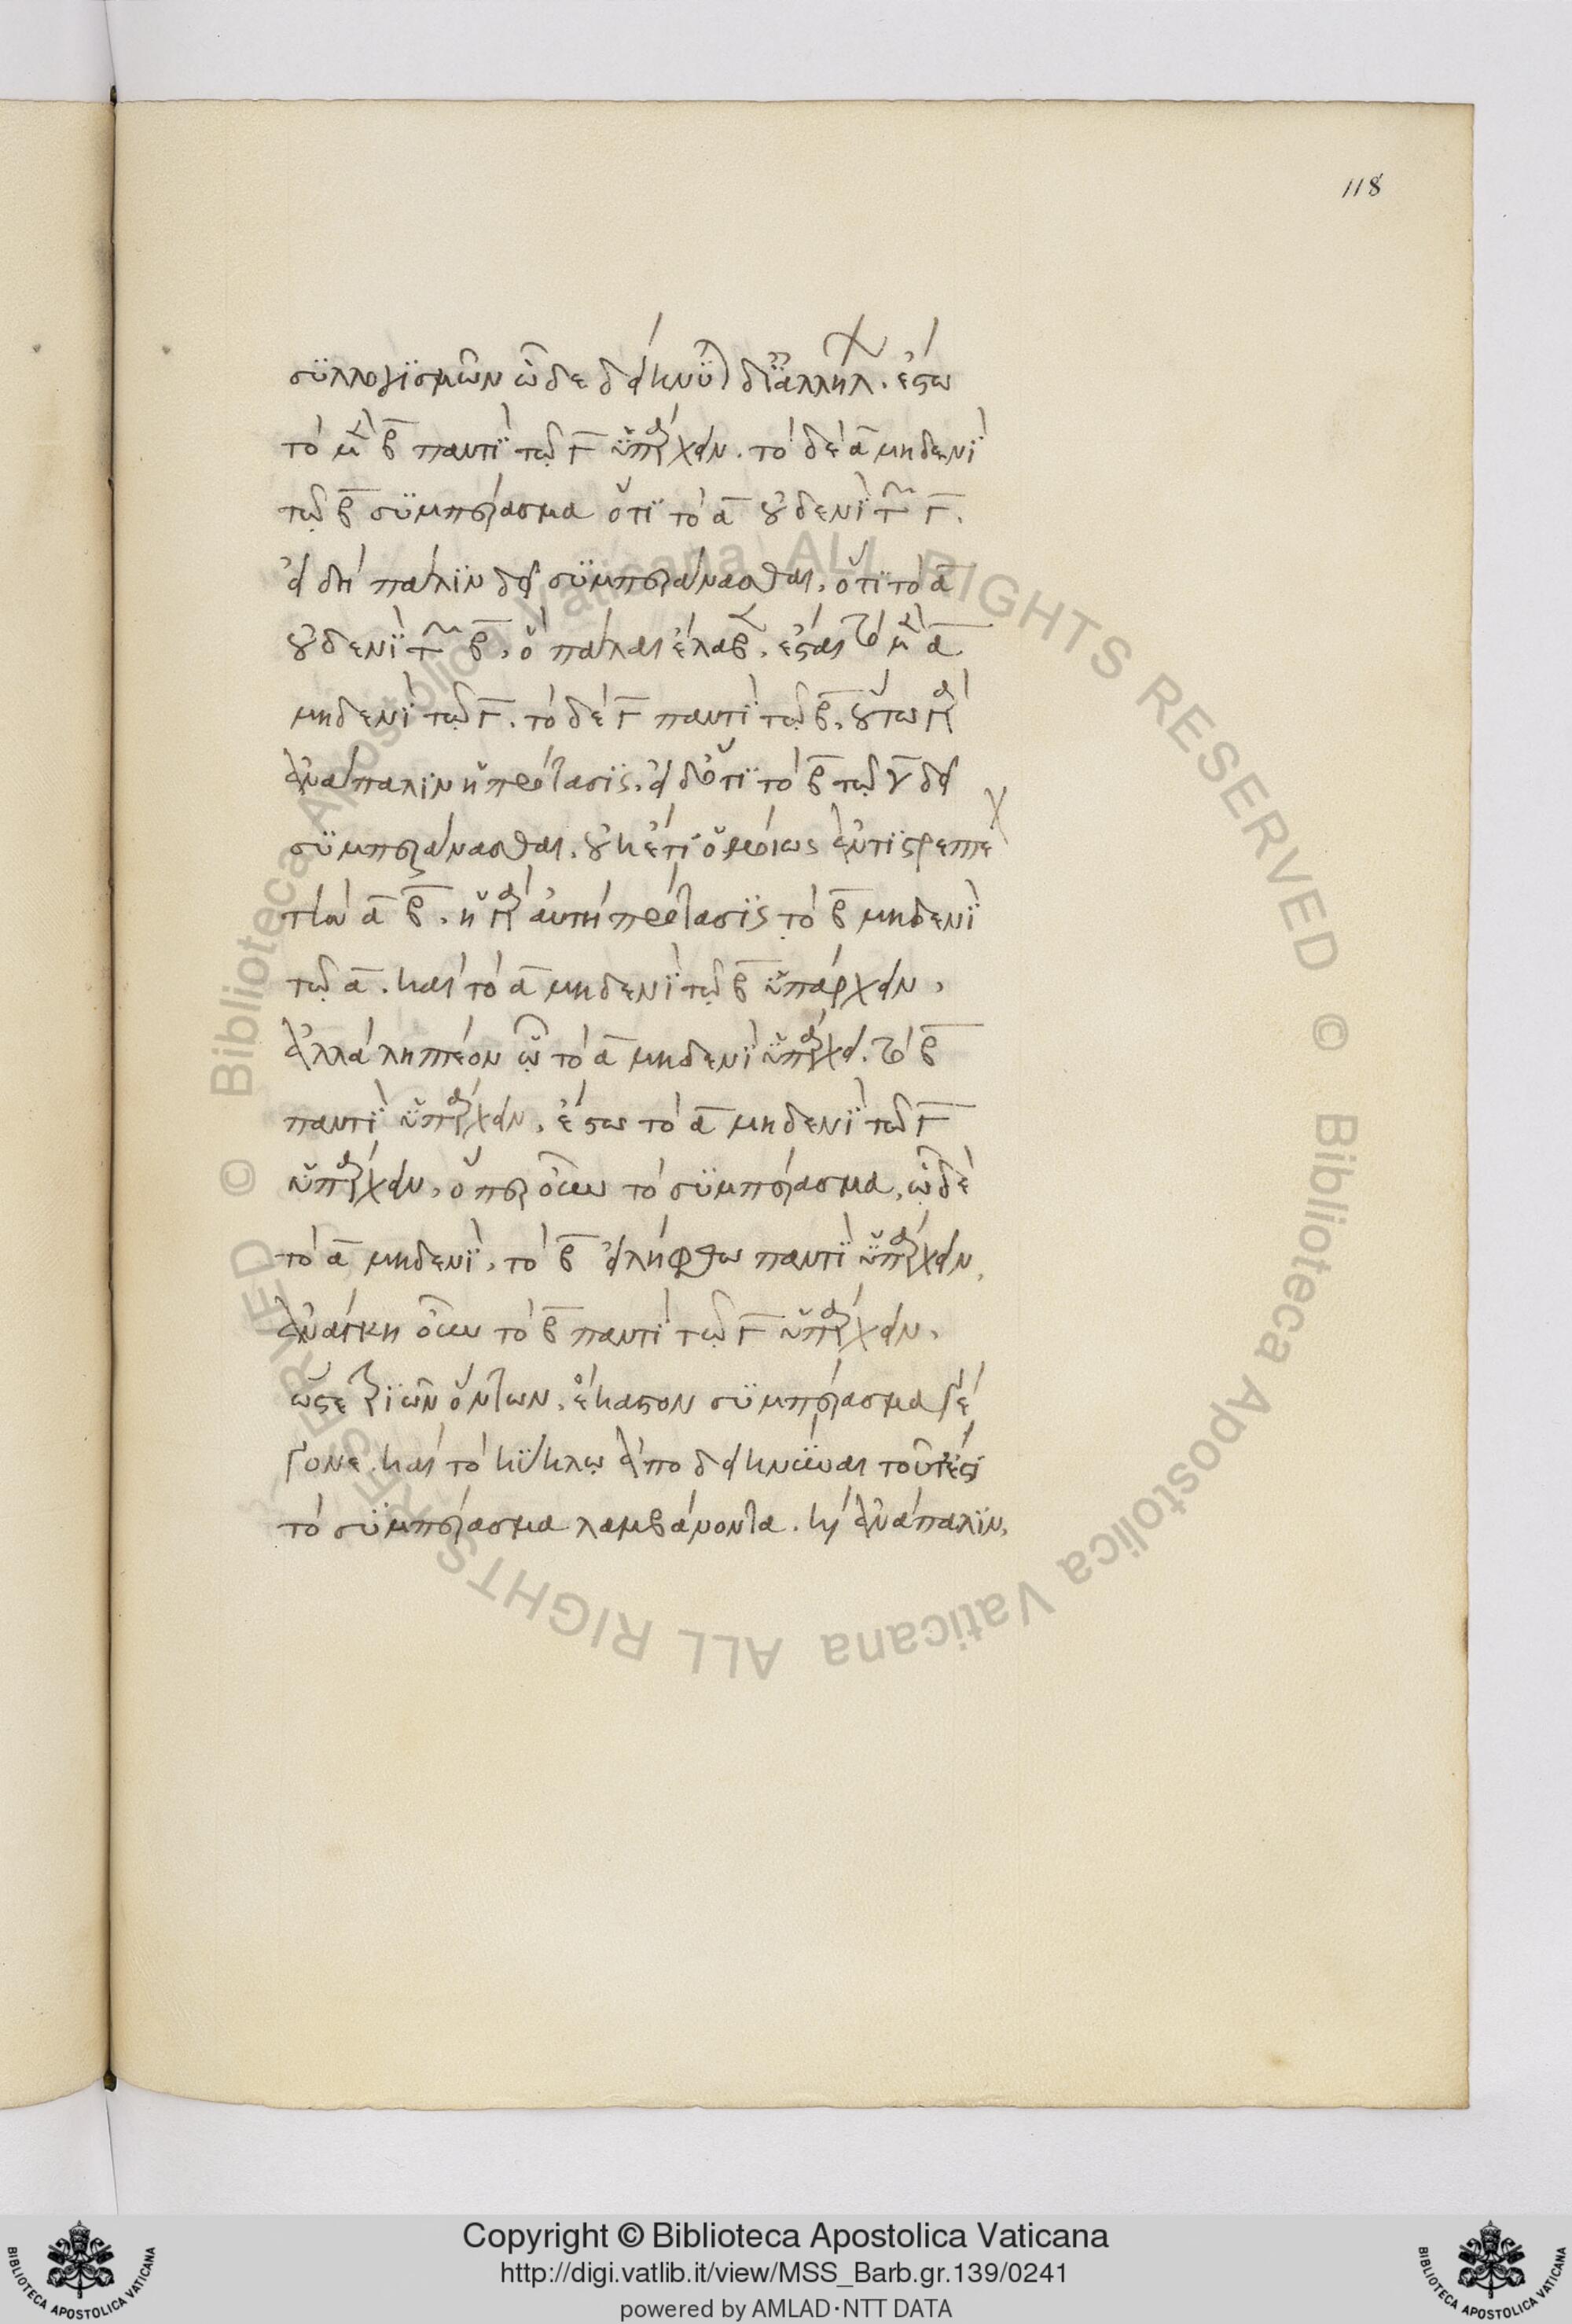 118
συλλογϊσμῶν ὧδε δείκνυται διαλλήλων. ἔστω
τὸ μὲν β̅ παντὶ τῷ Γ̅ ὑπάρχειν. τὸ δὲ α̅ μηδενὶ
τῷ β̅ συμπέρασμα ὅτι τὸ α̅ οὐδενὶ τῶν Γ̅.
εἰ δὴ πάλιν δεῖ συμπεράνασθαι, ὅτι τὸ α̅
οὐδενὶ τῶν β̅, ὃ πάλαι ἔλαβεν, ἔσται τὸ μὲν α̅
μηδενὶ τῷ Γ̅. τὸ δὲ Γ̅ παντὶ τῷ β̅, οὕτω γὰρ
ἀνάπαλιν ἡ πρότασις. εἰ δ' ὅτι τὸ β̅ τῷ γ̅ δεῖ
συμπεράνασθαι, οὐκέτι ὁμοίως ἀντιστρεπτέον
τὸ α̅ β̅. ἡ γὰρ αὐτὴ πρότασις τὸ β̅ μηδενὶ
τῷ α̅. καὶ τὸ α̅ μηδενὶ τῷ β̅ ὑπάρχειν,
ἀλλὰ ληπτέον ᾧ τὸ α̅ μηδενὶ ὑπάρχει. τὸ β̅
παντὶ ὑπάρχειν, ἔστω τὸ α̅ μηδενὶ τῷ Γ̅
ὑπάρχειν, ὅπερ ἦν τὸ συμπέρασμα, ᾧ δὲ
τὸ α̅ μηδενὶ, τὸ β̅ εἰλήφθω παντὶ ὑπάρχειν,
ἀνάγκη οὖν τὸ β̅ παντὶ τῷ Γ̅ ὑπάρχειν,
ὥστε τριῶν ὄντων, ἕκαστον συμπέρασμα γέ
γονε. καὶ τὸ κύκλῳ ἀποδεικνύναι τοῦτέστι
τὸ συμπέρασμα λαμβάνοντα. καὶ ἀνάπαλιν,
Copyright © Biblioteca Apostolica Vaticana
http://digi.vatlib.it/view/MSS_Barb.gr.139/0241
powered by AMLAD·NTT DATA